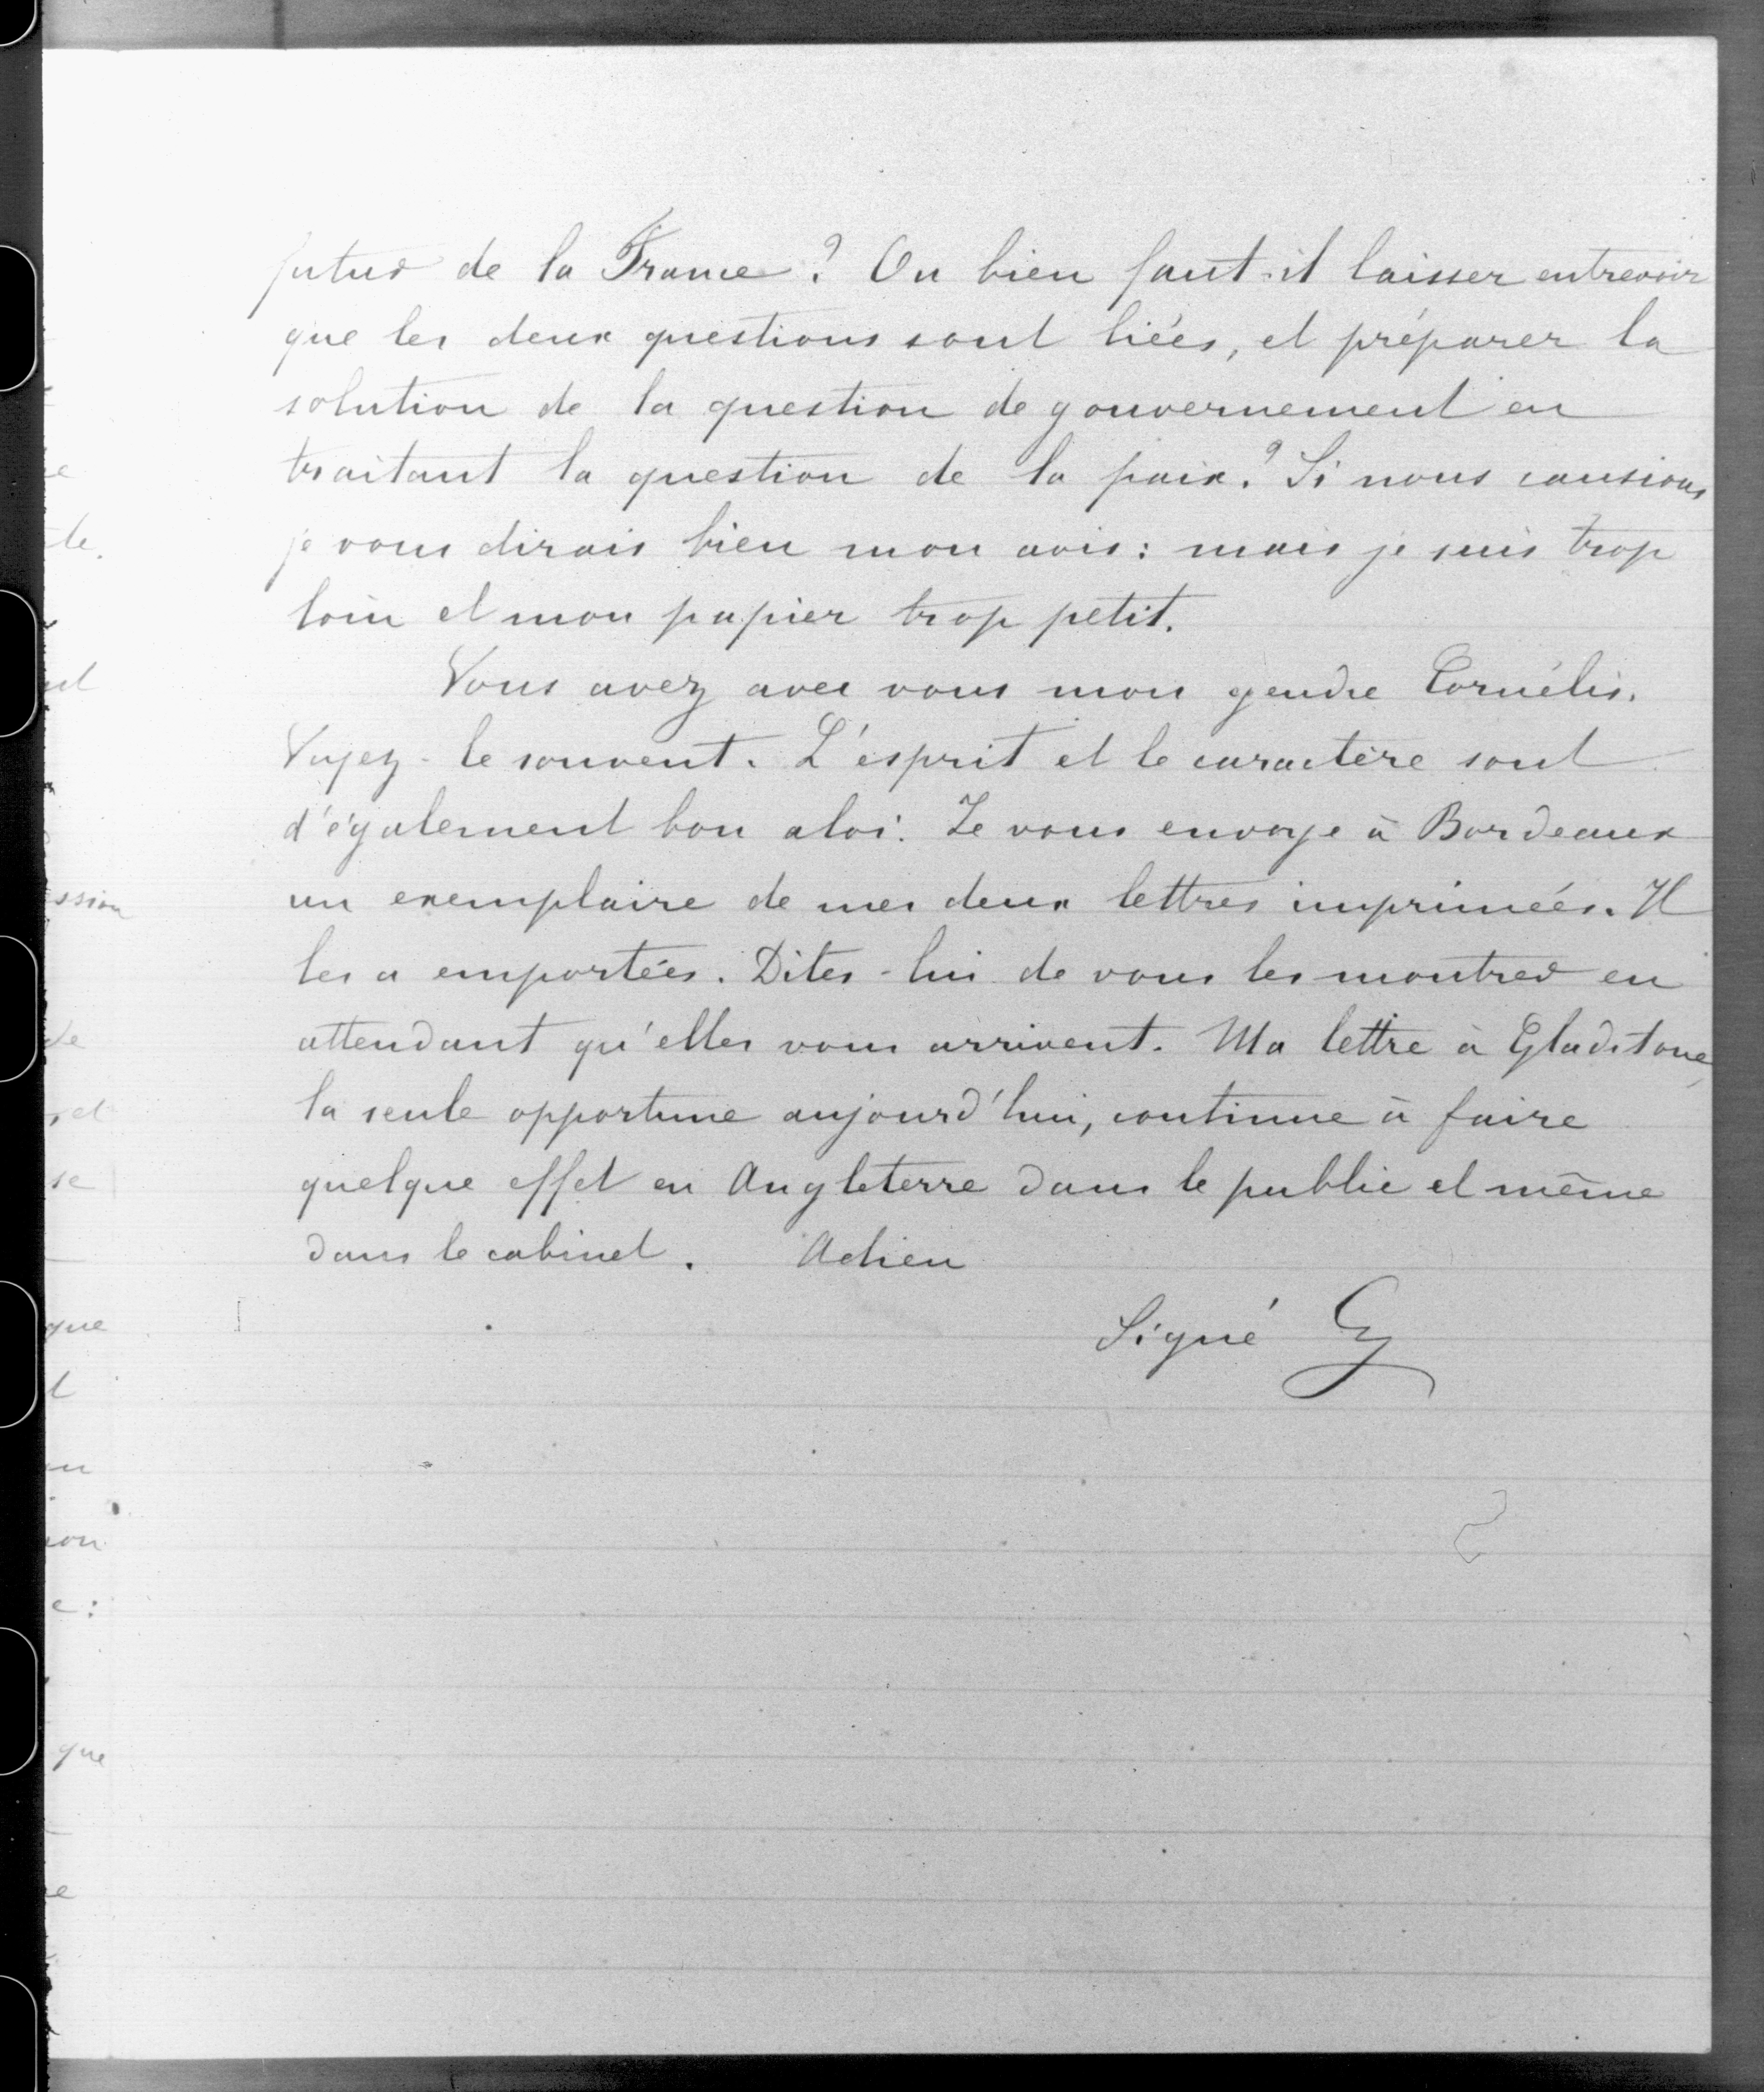 futur de la France ? Ou bien faut-il laisser entrevoir
que les deux questions sont liées, et préparer la
solution de la question de gouvernement en
traitant la question de la paix ? Si nous causions
je vous dirais bien mon avis : mais je suis trop
loin et mon papier trop petit.
Vous avez avec vous mon gendre Cornélis.
Voyez-le souvent. L'esprit et le caractère sont
d'également bon aloi. Je vous envoye à Bordeaux
un exemplaire de mes deux lettres imprimées. Il
les a emportées. Dites-lui de vous les montrer en
attendant qu'elles vous arrivent. Ma lettre à Gladstone,
la seule opportune aujourd'hui, continue à faire
quelque effet en Angleterre dans le public et même
dans le cabinet. Adieu
Signé G
te.
ssion
de
se
que
que